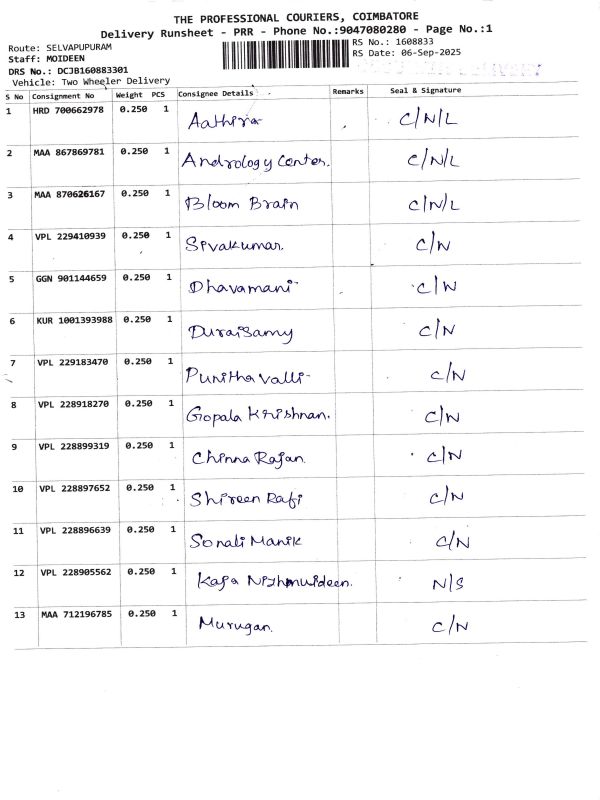 THE PROFESSIONAL COURIERS, COIMBATORE
Delivery Runsheet - PRR - Phone No.:9047080280 - Page No.:1
Route: SELVAPUPURAM RS No.: 1608833
Staff: MOIDEEN RS Date: 06-Sep-2025
DRS No.: DCJB160883301
Vehicle: Two Wheeler Delivery
S No Consignment No Weight PCS Consignee Details Remarks Seal & Signature
1 HRD 700662978 0.250 1 Aathira C/N/L
2 MAA 867869781 0.250 1 Andrology Center. C/N/L
3 MAA 870626167 0.250 1 Bloom Brain C/N/L
4 VPL 229410939 0.250 1 Sivakumar. C/N
5 GGN 901144659 0.250 1 Dhavamani C/N
6 KUR 1001393988 0.250 1 DuraiSamy C/N
7 VPL 229183470 0.250 1 Punithavalli C/N
8 VPL 228918270 0.250 1 Gopala Krishnan. C/N
9 VPL 228899319 0.250 1 Chinna Rajan. C/N
10 VPL 228897652 0.250 1 Shireen Rafi C/N
11 VPL 228896639 0.250 1 Sonali Manik C/N
12 VPL 228905562 0.250 1 Kaja N/S
13 MAA 712196785 0.250 1 Murugan. C/N